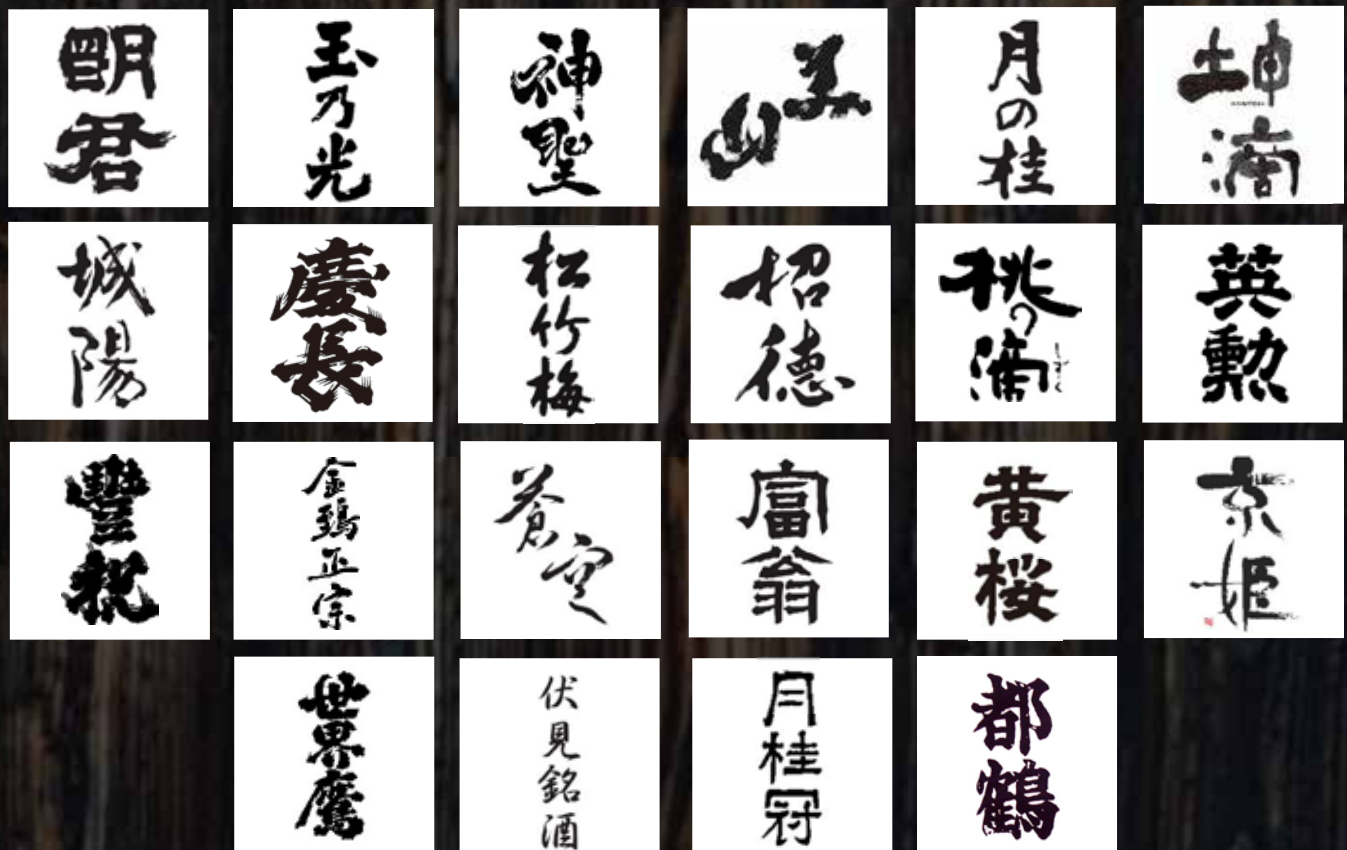 明君
玉乃光
神聖
美山
月の桂
坤滴
城陽
慶長
松竹梅
招德
桃の滴
しずく
英勲
豐祝
金鵄正宗
蒼空
富翁
黄桜
京姫
世界鷹
伏見銘酒
月桂冠
都鶴